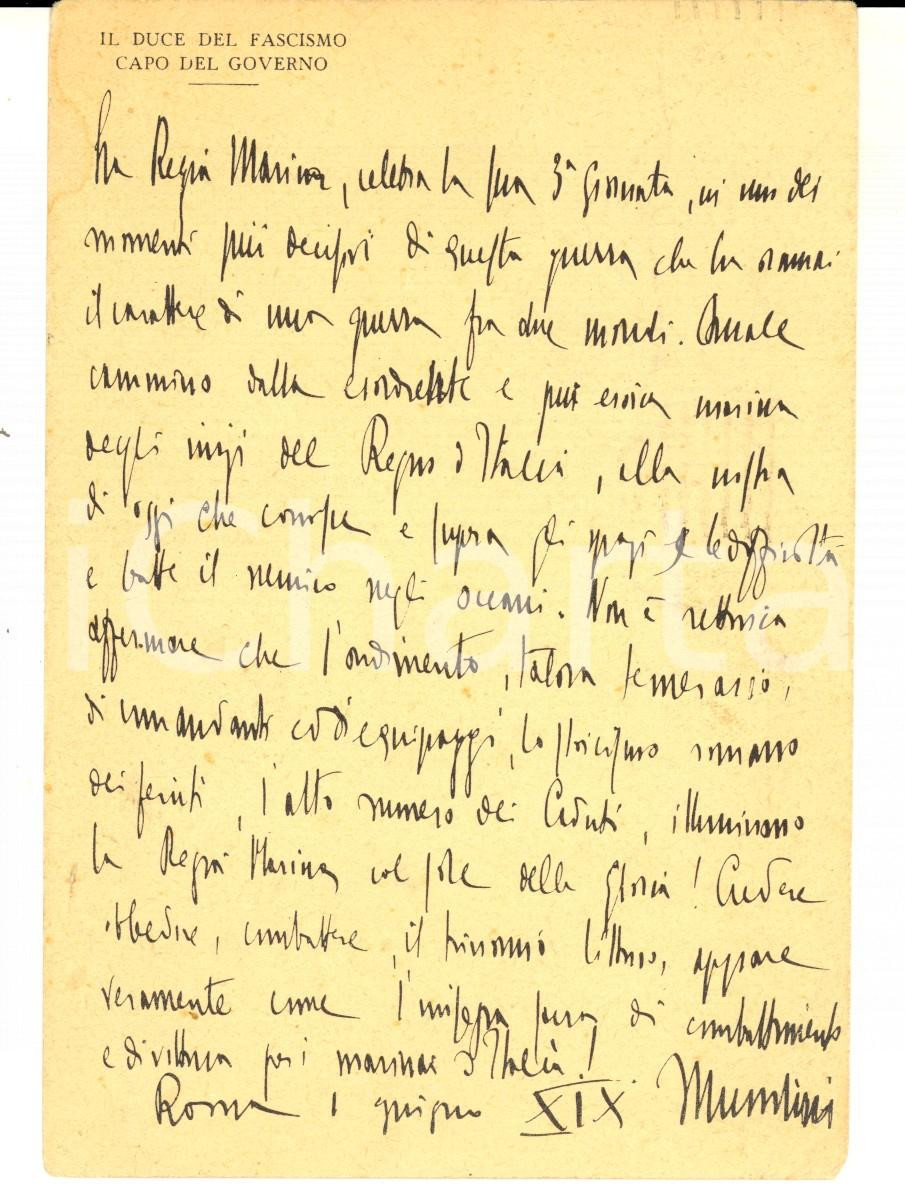 IL DUCE DEL FASCISMO
CAPO DEL GOVERNO
La Regia Marina, celebra la sua 3ª Giornata, in uno dei
momenti più decisivi di questa guerra che ha oramai
il carattere di una guerra fra due mondi. Quale
cammino dalla esordiente e pur eroica marina
degli inizi del Regno d'Italia, alla nostra
di oggi che conosce e supera gli spazi e le difficoltà
e batte il nemico negli oceani. Non è rettorica
affermare che l'ardimento, talora temerario,
di comandanti ed equipaggi, lo stoicismo romano
dei feriti, l'alto numero dei Caduti, illuminano
la Regia Marina col sole della gloria! Credere
obbedire, combattere, il trinomio littorio, appare
veramente come l'insegna sacra di combattimento
e di vittoria per i marinai d'Italia!
Roma 1 giugno XIX Mussolini
iCharta